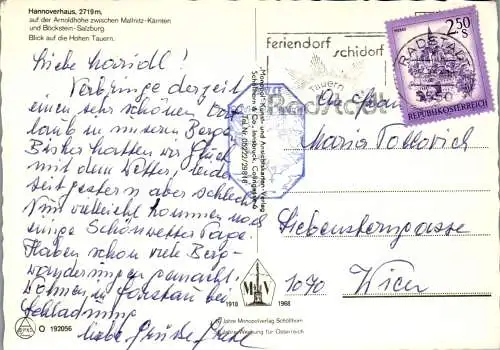 Hannoverhaus, 2719 m,
auf der Arnoldhöhe zwischen Mallnitz-Kärnten
und Böckstein-Salzburg
Blick auf die Hohen Tauern.
Liebe Mariedl!
Verbringe derzeit
einen sehr schönen
laub in unseren Berge
Bisher hatten wir Glück
mit dem Wetter, leider
seit gestern aber schlecht
Nun vielleicht kommen noch
einige Schönwetter Tage.
Haben schon viele Berg-
wanderungen gemacht.
Wohnen in Forstau bei
Schladming
liebe Grüße
192056
feriendorf
schidorf
Tauern
Radstadt
2.50
S
REPUBLIK ÖSTERREICH
RADSTADT
Monopol Kunst- und Ansichtskarten-Verlag
Schöllhorn & Co., Innsbruck,
Tel. Nr. 05222/29818
An Frau
Maria
Siebensterngasse
1070 Wien
M V
1918 1968
50 Jahre Monopolverlag Schöllhorn
50 Jahre Werbung für Österreich